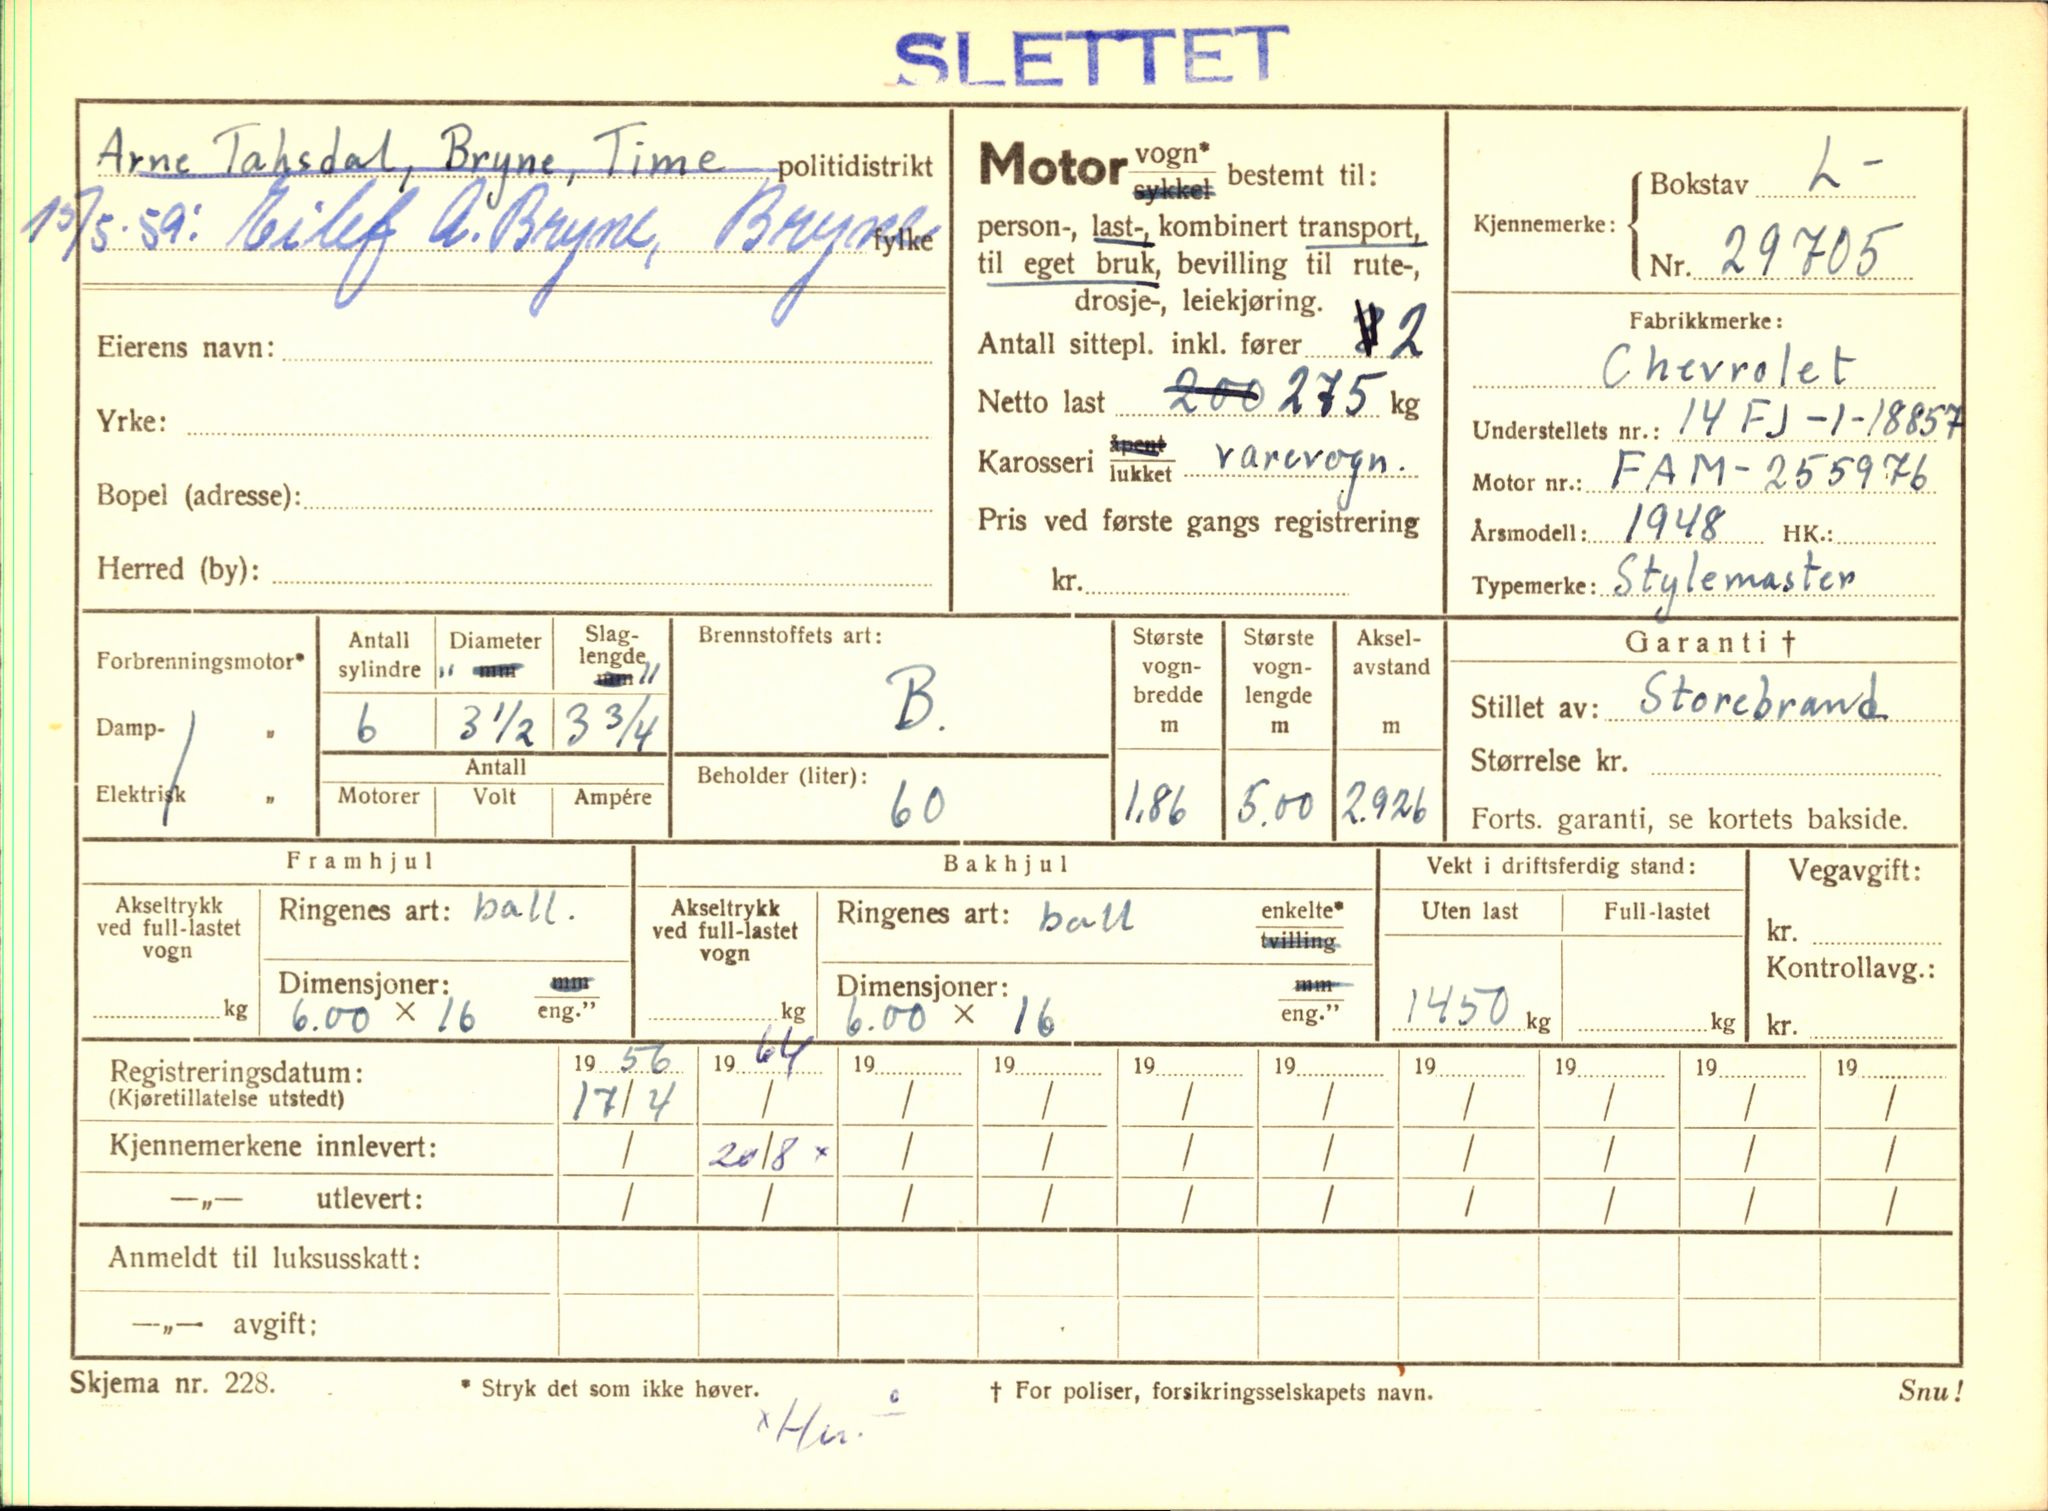 SLETTET
Arne Tahsdal, Bryne, Time politidistrikt
15/5-59: Eilef A. Bryne, Bryne fylke
Eierens navn:
Yrke:
Bopel (adresse):
Herred (by):
Motor vogn* sykkel bestemt til:
person-, last-, kombinert transport,
til eget bruk, bevilling til rute-,
drosje-, leiekjøring.
Antall sittepl. inkl. fører 2
Netto last 200 275 kg
Karosseri åpent lukket varevogn.
Pris ved første gangs registrering
kr.
Kjennemerke: Bokstav L-
Nr. 29705
Fabrikkmerke:
Chevrolet
Understellets nr.: 14 FJ-1-18857
Motor nr.: FAM-255976
Årsmodell: 1948 HK.:
Typemerke: Stylemaster
Forbrenningsmotor*
Damp- "
Elektrisk "
Antall sylindre
6
Diameter " mm
3 1/2
Slag-lengde mm "
3 3/4
Antall
Motorer Volt Ampére
Brennstoffets art:
B.
Beholder (liter):
60
Største vogn-bredde m
1.86
Største vogn-lengde m
5.00
Aksel-avstand m
2.926
Garanti †
Stillet av: Storebrand
Størrelse kr.
Forts. garanti, se kortets bakside.
Framhjul
Akseltrykk ved full-lastet vogn
kg
Ringenes art: ball.
Dimensjoner: mm eng."
6.00 × 16
Bakhjul
Akseltrykk ved full-lastet vogn
kg
Ringenes art: ball enkelte* tvilling
Dimensjoner: mm eng."
6.00 × 16
Vekt i driftsferdig stand:
Uten last Full-lastet
1450 kg kg
Vegavgift:
kr.
Kontrollavg.:
kr.
Registreringsdatum: 19 56 19 64 19 19 19 19 19 19 19 19
(Kjøretillatelse utstedt) 17/4 / / / / / / / / /
Kjennemerkene innlevert: / 20/8 × / / / / / / / /
—„— utlevert: / / / / / / / / / /
Anmeldt til luksusskatt:
—„— avgift:
Skjema nr. 228. * Stryk det som ikke høver. † For poliser, forsikringsselskapets navn. Snu!